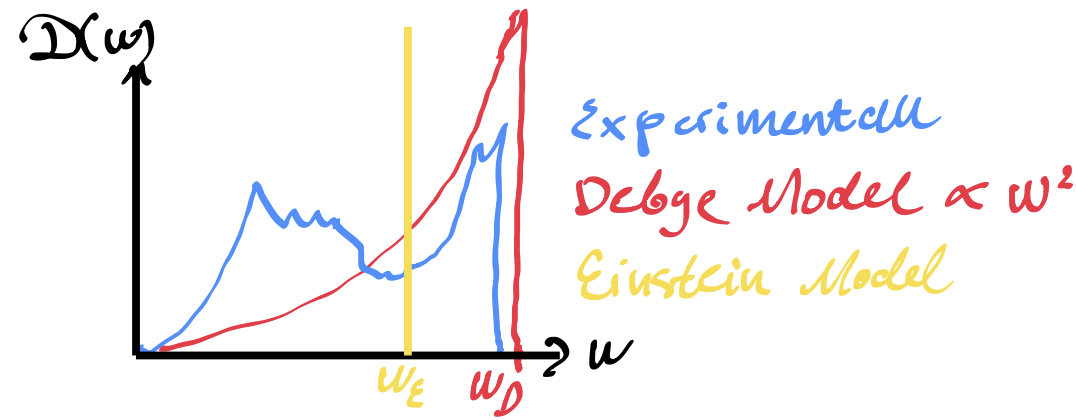 D(ω)
Experimentell
Debye Model ∝ ω²
Einstein Model
ω
ω_E
ω_D